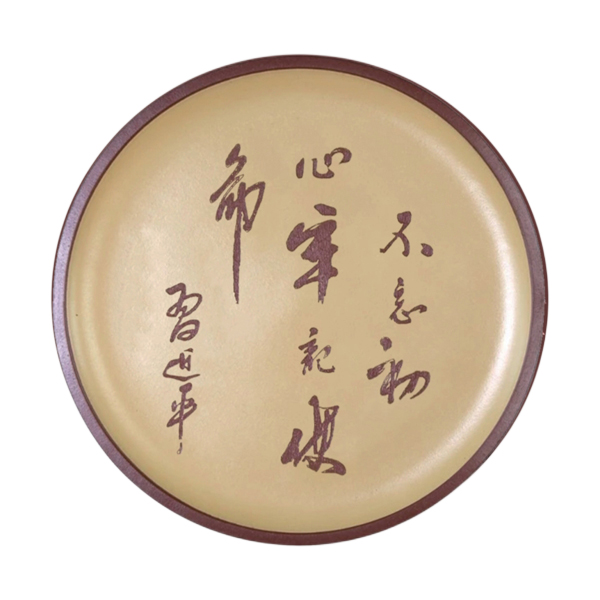 不忘初
心牢記使
命
習近平